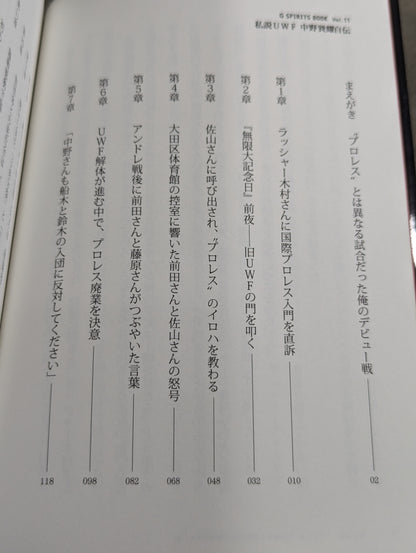 G SPIRITS BOOK Vol.11
私説UWF 中野巽耀自伝
まえがき “プロレス”とは異なる試合だった俺のデビュー戦 02
第1章 ラッシャー木村さんに国際プロレス入門を直訴 010
第2章 『無限大記念日』前夜――旧UWFの門を叩く 032
第3章 佐山さんに呼び出され、“プロレス”のイロハを教わる 048
第4章 大田区体育館の控室に響いた前田さんと佐山さんの怒号 068
第5章 アンドレ戦後に前田さんと藤原さんがつぶやいた言葉 082
第6章 UWF解体が進む中で、プロレス廃業を決意 098
第7章 「中野さんも船木と鈴木の入団に反対してください」 118